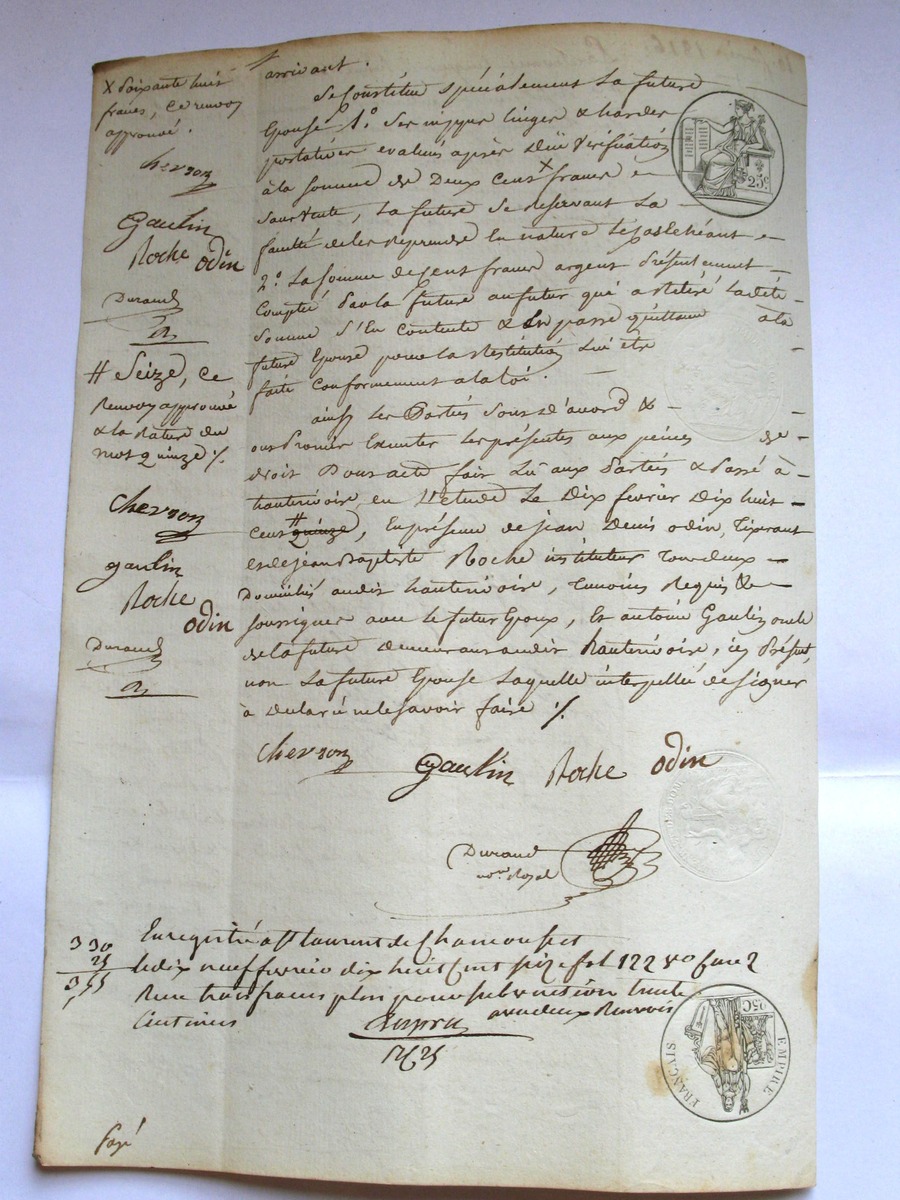 arrivant.
Se Constitue spécialement la future
Epouse 1.° Ses nippes linges & hardes
portatives evalués après düe vérification
à la Somme de Deux Cent x francs
Sans vente, La future Se Reservant La
faculté de les Reprendre En nature le cas échéant
2.° La Somme de Cent francs argent Présentement
Compté Par la future au futur qui a Retiré Ladite
Somme S'En Contente & En passe quittance à la
future Epouse pour la Restitution Lui etre
faite Conformement a la loi.
ainsy Les Parties Sont d'accord &
ont Promis Executer Les présentes aux peines de
droit Dont acte fait Lu aux Parties & Passé à
hauterivoire en L'etude Le Dix fevrier Dix huit
Cent # quinze, En présence de jean Denis odin, Tixerant
et de jean Baptiste Roche instituteur Tous deux
Domiciliés audit hauterivoire, Temoins Requis &
soussignés avec le futur Epoux, & antoine Gaulin oncle
de la future demeurant audit hauterivoire, icy Présent,
non La future Epouse Laquelle interpellée de signer
à Declaré ne le savoir faire ./.
chevron
gaulin Roche odin
Durand
no.re Royal
x Soixante huit
francs, Ce renvoy
approuvé.
chevron
Gaulin
Roche odin
Durand
# Seize, Ce
Renvoy approuvé
& la Rature du
mot quinze ./.
chevron
gaulin
Roche
odin
Durand
Enregistré a St Laurent de Chamousset
le dix neuf fevrier dix huit Cent seize fol 122 vo Case 2
Recu trois francs plus pour subvention trente
Centimes avec deux Renvois
3 30
25
3,55
25C
25C
EMPIRE FRANÇAIS